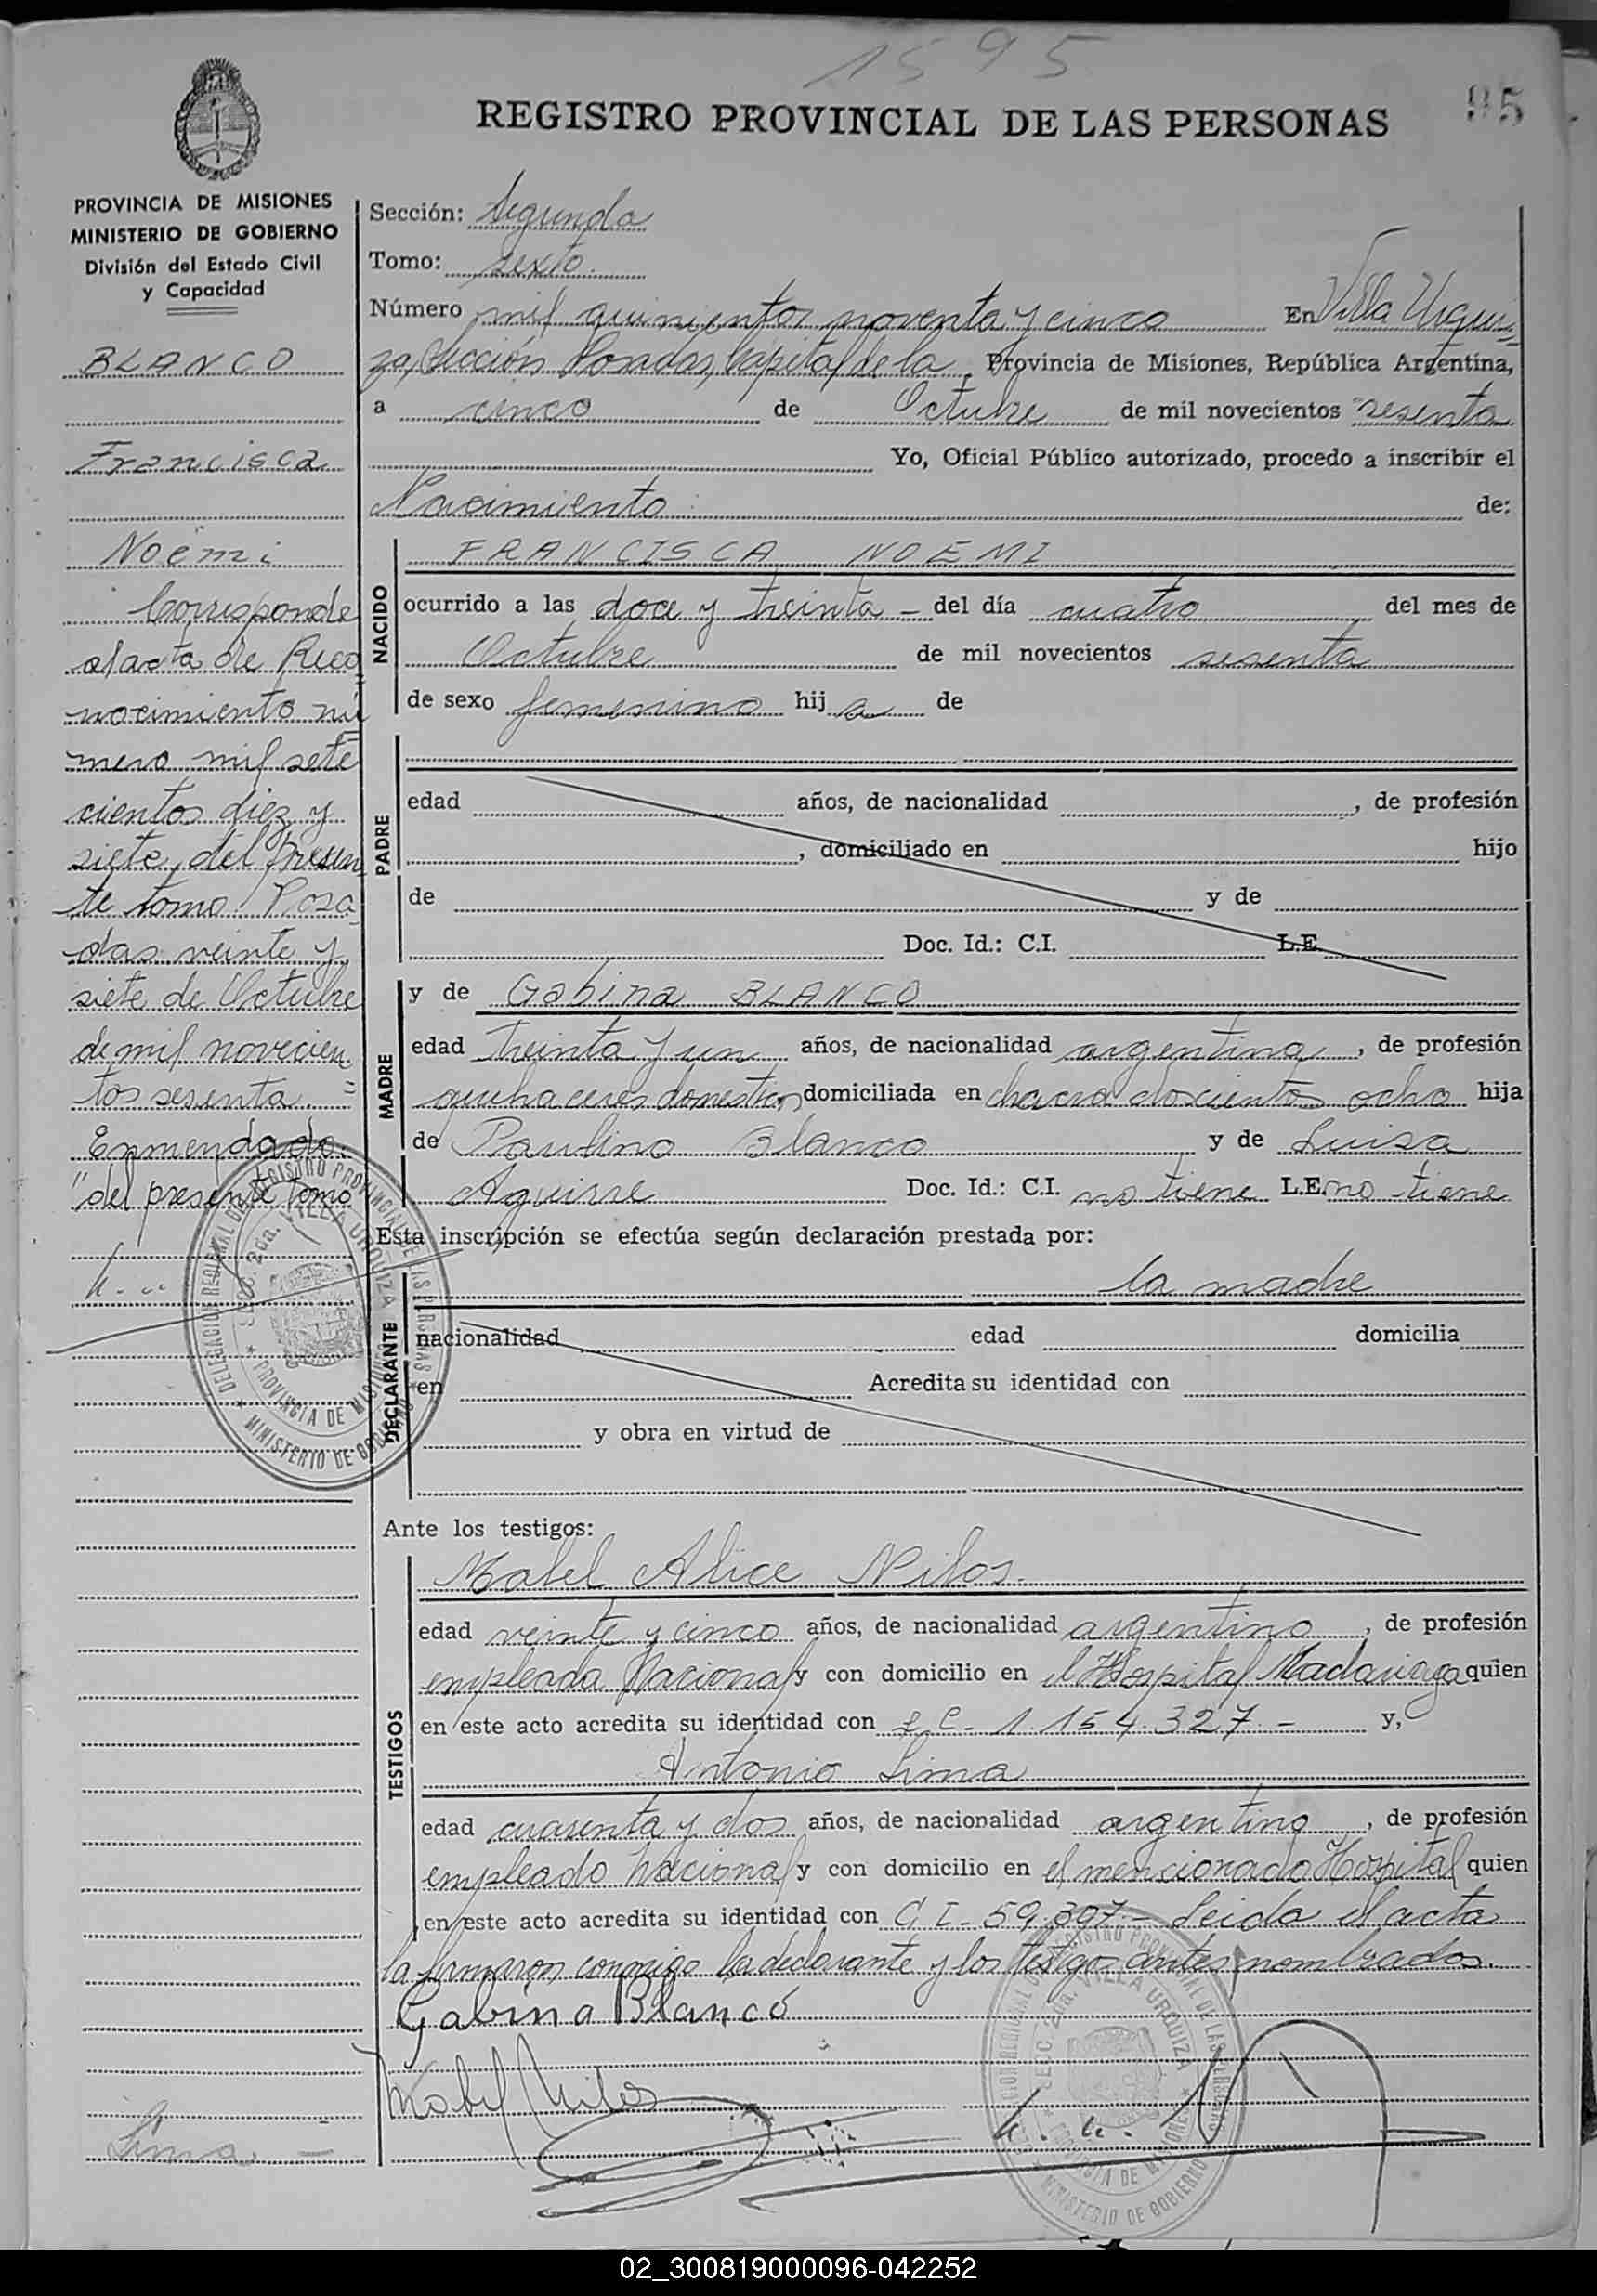 1595
95
REGISTRO PROVINCIAL DE LAS PERSONAS
PROVINCIA DE MISIONES
MINISTERIO DE GOBIERNO
División del Estado Civil
y Capacidad
BLANCO
Francisca
Noemi
Corresponde
al acta de Reco
nocimiento nú
mero mil sete
cientos diez y
siete, del presen
te tomo. Posa
das veinte y
siete de Octubre
de mil novecien
tos sesenta. =
Enmendado:
"del presente tomo
Sección: Segunda
Tomo: sexto.
Número mil quinientos noventa y cinco En Villa Urqui
za, Sección Posadas, Capital de la Provincia de Misiones, República Argentina,
a cinco de Octubre de mil novecientos sesenta
Yo, Oficial Público autorizado, procedo a inscribir el
Nacimiento de:
NACIDO
FRANCISCA NOEMI
ocurrido a las doce y treinta - del día cuatro del mes de
Octubre de mil novecientos sesenta
de sexo femenino hij a de
PADRE
edad años, de nacionalidad , de profesión
, domiciliado en hijo
de y de
Doc. Id.: C.I. L.E.
MADRE
y de Gabina BLANCO
edad treinta y un años, de nacionalidad argentina, de profesión
quehaceres domesticos, domiciliada en chacra doscientos ocho hija
de Paulino Blanco y de Luisa
Aguirre Doc. Id.: C.I. no tiene L.E. no tiene
Esta inscripción se efectúa según declaración prestada por:
DECLARANTE
la madre
nacionalidad edad domicilia
en Acredita su identidad con
y obra en virtud de
Ante los testigos:
TESTIGOS
Mabel Alice Nilos.
edad veinte y cinco años, de nacionalidad argentino, de profesión
empleada Nacional y con domicilio en el Hospital Madariaga quien
en este acto acredita su identidad con L.C- 1.154.327.- y,
Antonio Lima
edad cuarenta y dos años, de nacionalidad argentino, de profesión
empleado Nacional y con domicilio en el mencionado Hospital quien
en este acto acredita su identidad con C.I- 59.397.- Leida el acta
la firmaron conmigo la declarante y los testigos antes nombrados.
Gabina Blanco
Mabel Nilos
Lima -
DELEGACION REGIONAL DEL REGISTRO PROVINCIAL DE LAS PERSONAS
SECC. 2da. VILLA URQUIZA
PROVINCIA DE MISIONES
MINISTERIO DE GOBIERNO
DELEGACION REGIONAL DEL REGISTRO PROVINCIAL DE LAS PERSONAS
SECC. 2da. VILLA URQUIZA
PROVINCIA DE MISIONES
MINISTERIO DE GOBIERNO
02_300819000096-042252